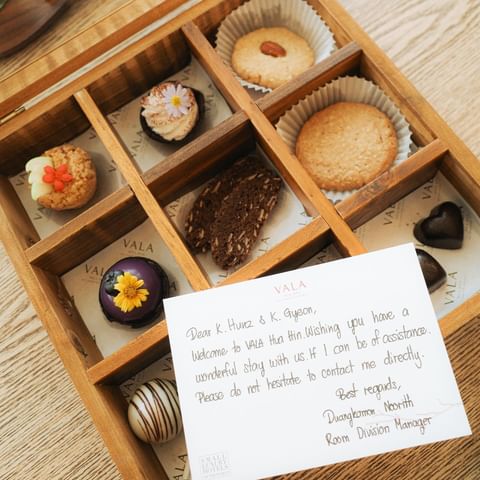 VALA
Dear K. Hunz & K. Gyeon,
Welcome to VALA Hua Hin. Wishing you have a
wonderful stay with us. If I can be of assistance.
Please do not hesitate to contact me directly.
Best regards,
Duangkamon Noorith
Room Division Manager
SMALL
LUXURY
HOTELS
VALA
VALA
VALA